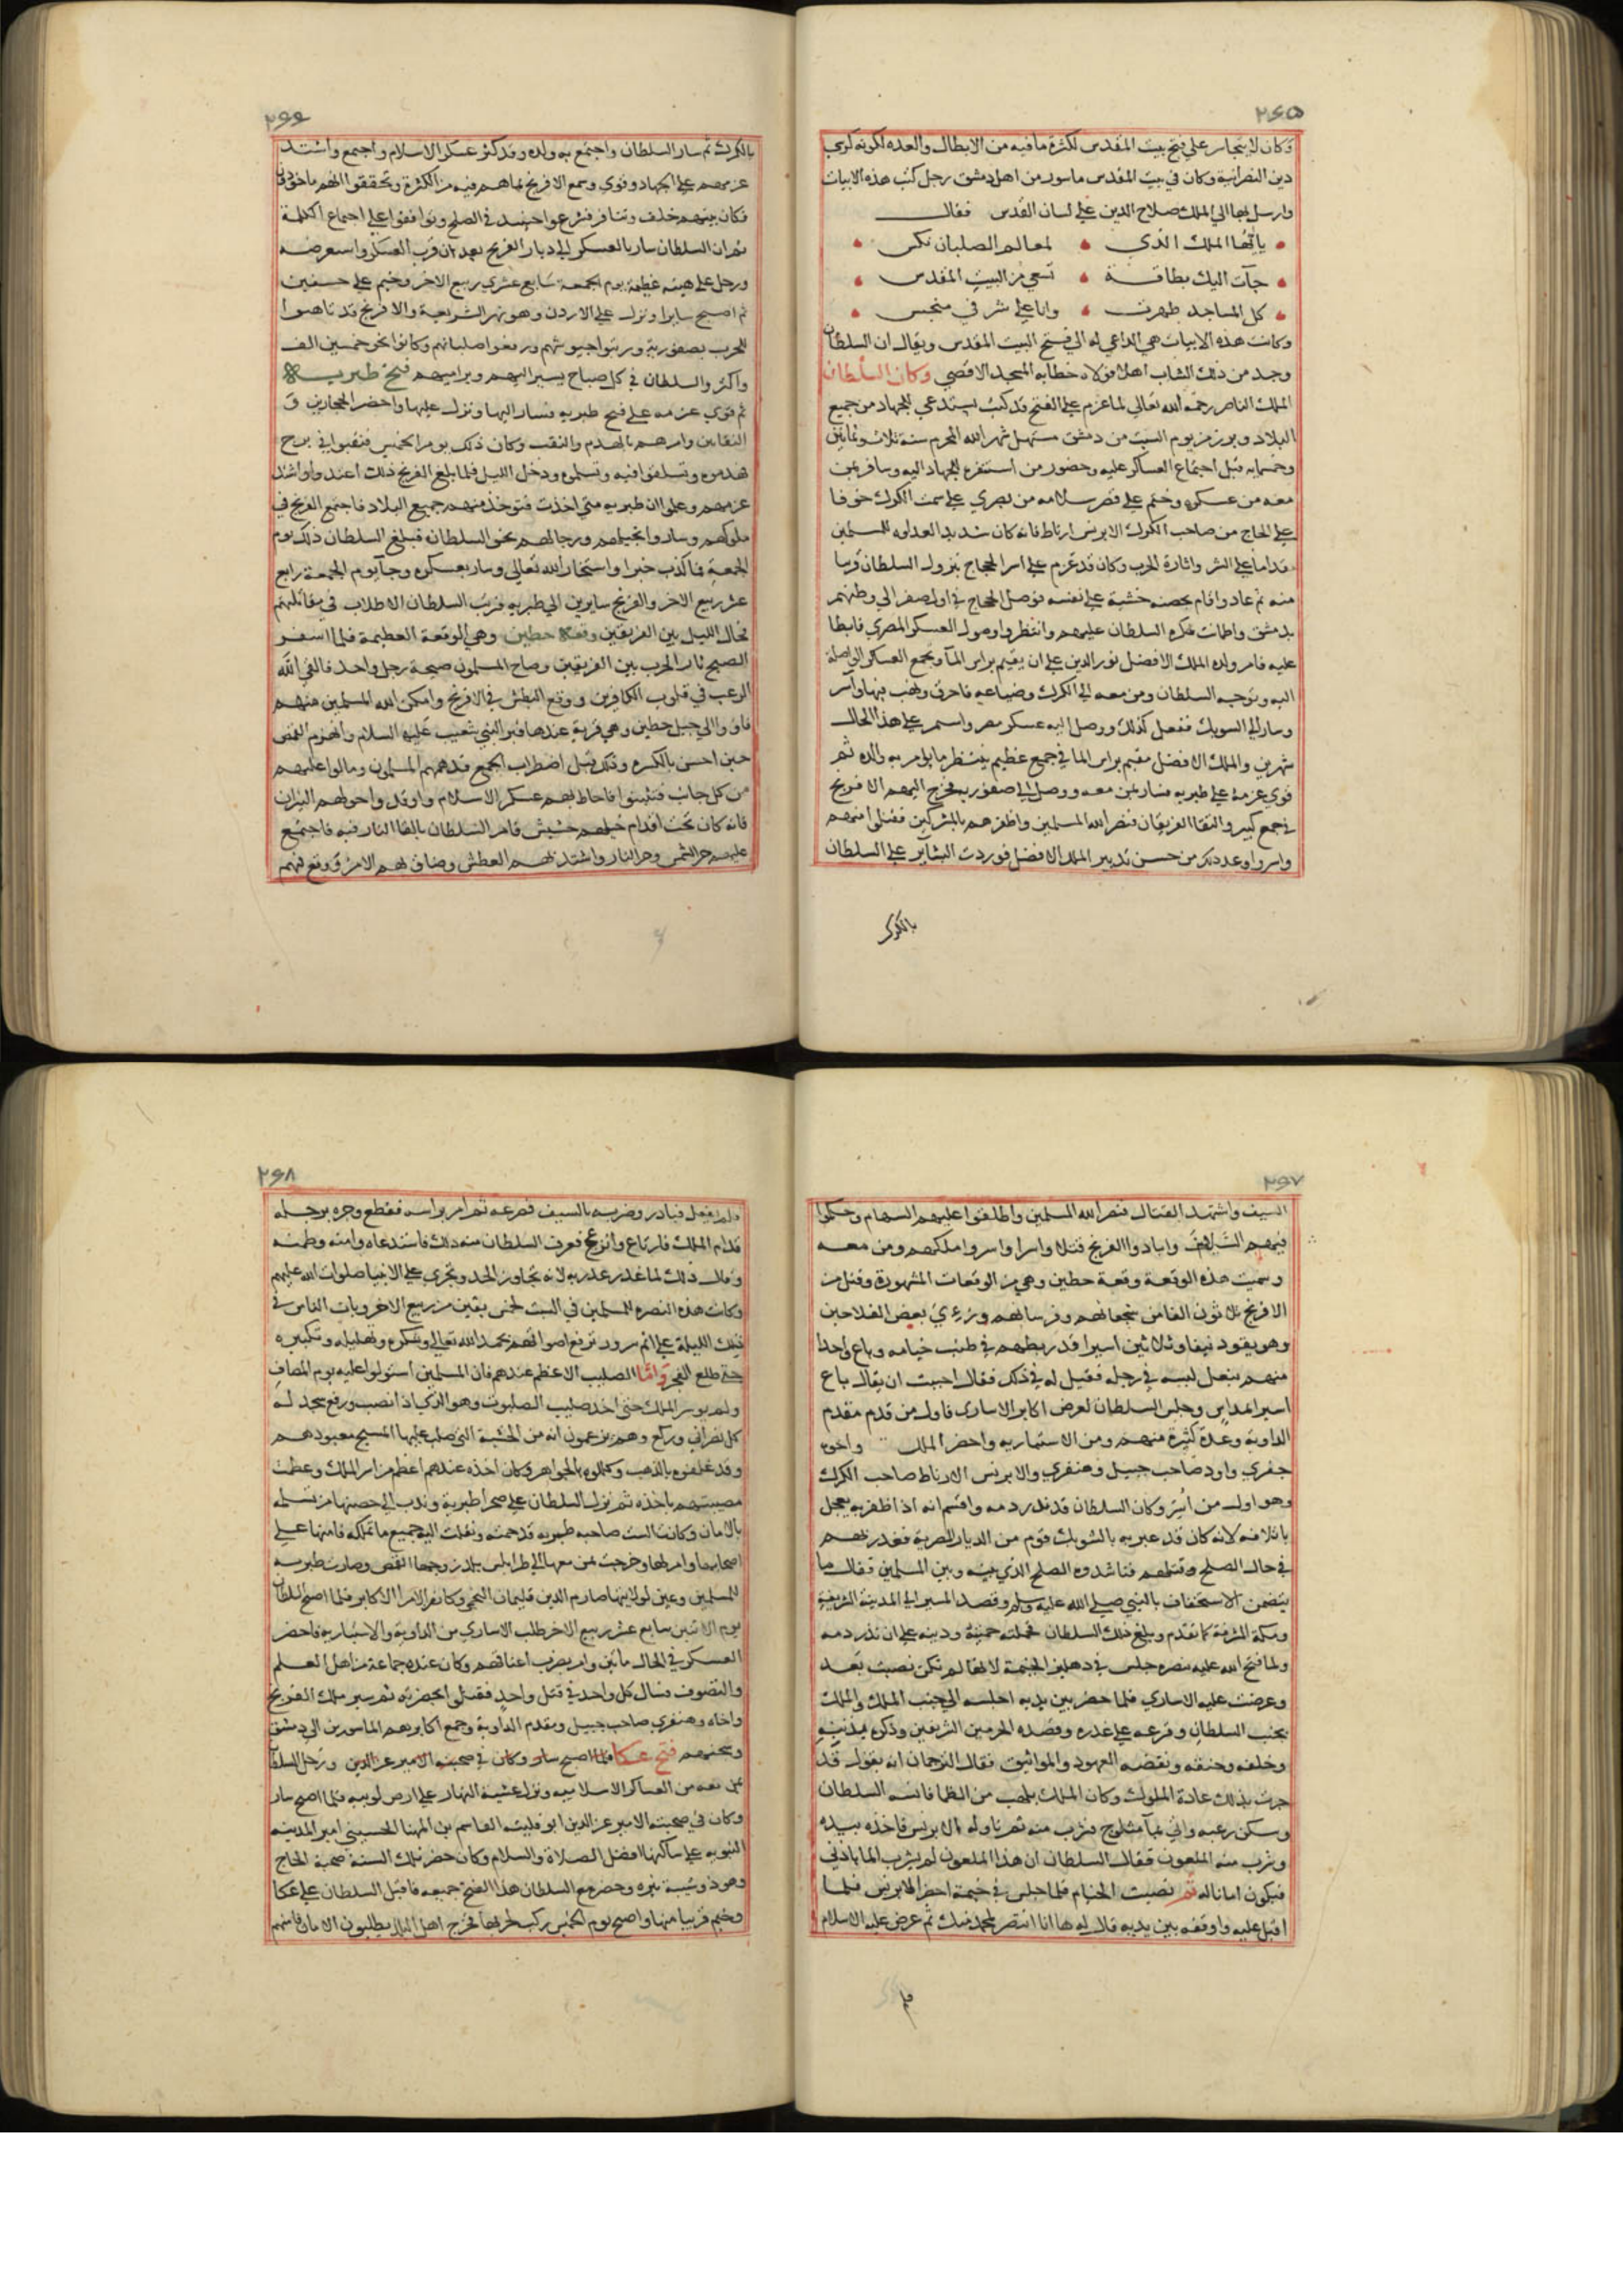 ٢٦٥
وكان لا يتجاسر على فتح بيت المقدس لكثرة ما فيه من الابطال والعده لكونه كرسي
دين النصرانية وكان في بيت المقدس ماسور من اهل دمشق رجل كتب هذه الابيات
وارسل بها الي الملك صلاح الدين علي لسان القدس فقال
ياايها الملك الذي لمعالم الصلبان نكس
جآت اليك بطاقة تسعي من البيت المقدس
كل المساجد طهرت وانا علي شرفي منجس
وكانت هذه الابيات هي الداعي له الي فتح البيت المقدس ويقال ان السلطان
وجد من ذلك الشاب اهلا فولاه خطابه المسجد الاقصي وكان السلطان
الملك الناصر رحمه الله تعالي لما عزم علي الفتح قد كتب يستدعي للجهاد من جميع
البلاد وبرز من يوم السبت من دمشق مستهل شهر الله المحرم سنة ثلاث وثمانين
وخمسمايه قبل اجتماع العساكر عليه وحضور من استنفره للجهاد اليه وسافر بمن
معه من عسكره وخيم علي قصر سلامه من بصري علي سمت الكرك خوفا
علي الحاج من صاحب الكرك الابرنس ارناط فانه كان شديد العداوه للمسلمين
مقداما علي الشر واثارة الحرب وكان قد عزم علي اسر الحجاج بنزول السلطان قريبا
منه ثم عاد واقام بحصنه خشية علي نفسه فوصل الحجاج في اول صفر الي وطنهم
بدمشق واطمانت فكره السلطان عليهم وانتظر وصول العسكر المصري فابطا
عليه فامر ولده الملك الافضل نور الدين علي ان يقيم براس المآ ويجمع العساكر الواصلة
اليه وتوجه السلطان ومن معه الي الكرك وضياعه فاحرق ونهب بها واسر
وسار الي الشوبك ففعل كذلك ووصل اليه عسكر مصر واستمر علي هذا الحال
شهرين والملك الافضل مقيم براس الما في جمع عظيم ينتظر ما يامر به والده ثم
قوي عزمه علي طبريه فسار بمن معه ووصل الي صفوريه فخرج اليهم الافرنج
في جمع كبير والتقا الفريقان فنصر الله المسلمين واظفرهم بالمشركين فقتلوا منهم
واسروا وعد ذلك من حسن تدبير الملك الافضل فوردت البشاير علي السلطان
بالكرك
٢٦٦
بالكرك ثم سار السلطان واجتمع به ولده وقد كثر عسكر الاسلام واجتمع واشتد
عزمهم علي الجهاد وقوي وسمع الافرنج بما هم فيه من الكثرة وتحققوا انهم ماخوذون
فكان بينهم خلف وتنافر فشرعوا حينئد في الصلح وتوافقوا علي اجتماع الكلمة
ثم ان السلطان سار بالعسكر الي ديار الفرنج بعد ان قرب العسكر واستعرضه
ورحل علي هيئه عظيمة يوم الجمعة سابع عشري ربيع الاخر وخيم علي خسفين
ثم اصبح سايرا ونزل علي الاردن وهو نهر الشريعة والافرنج قد تاهبوا
للحرب بصفوريه ورتبوا جيوشهم ورفعوا صلبانهم وكانوا نحو خمسين الف
واكثر والسلطان في كل صباح يسير اليهم ويراميهم فتح طبريه
ثم قوي عزمه علي فتح طبريه فسار اليها ونزل عليها واحضر الحجارين و
النقابين وامرهم بالهدم والنقب وكان ذلك يوم الخميس فنقبوا في برج
هدموه وتسلقوا فيه وتسلموه ودخل الليل فلما بلغ الفرنج ذلك اعتدوا واشتد
عزمهم وعلموا ان طبريه متي اخذت فتوخذ منهم جميع البلاد فاجتمع الفرنج في
ملوكهم وساروا بخيلهم ورجالهم نحو السلطان فبلغ السلطان ذلك يوم
الجمعة فما كذب خبرا واستخار الله تعالي وسار بعسكره وجآ يوم الجمعة رابع
عشر ربيع الاخر والفرنج سايرين الي طبريه فرتب السلطان الاطلاب في مقابلتهم
فحال الليل بين الفريقين وقعة حطين وهي الوقعة العظيمة فلما اسفر
الصبح ثار الحرب بين الفريقين وصاح المسلمون صيحة رجل واحد فالقي الله
الرعب في قلوب الكافرين ووقع البطش في الافرنج وامكن الله المسلمين منهم
فاووا الي جبل حطين وهي قرية عندها قبر النبي شعيب عليه السلام وانهزم القمص
حين احس بالكسره وذلك قبل اضطراب الجمع فدهمهم المسلمون ومالوا عليهم
من كل جانب فثبتوا فاحاط بهم عسكر الاسلام واوقد واحولهم النيران
فانه كان تحت اقدام خيلهم حشيش فامر السلطان بالقا النار فيه فاجتمع
عليهم حر الشمس وحر النار واشتد بهم العطش وضاق بهم الامر ووقع فيهم
٢٦٧
السيف واشتد القتال فنصر الله المسلمين واطلقوا عليهم السهام وحكموا
فيهم السيوف وابادوا الفرنج قتلا واسرا واسروا ملكهم ومن معه
وسميت هذه الوقعة وقعة حطين وهي من الوقعات المشهورة وقتل من
الافرنج ثلاثون الفا من شجعانهم وفرسانهم ورءي بعض الفلاحين
وهو يقود نيفا وثلاثين اسيرا قد ربطهم في طنب خيامه وباع واحدا
منهم بنعل لبسه في رجله فقيل له في ذلك فقال احببت ان يقال باع
اسيرا بمداس وجلس السلطان لعرض اكابر الاساري فاول من قدم مقدم
الداوية وعدة كثيرة منهم ومن الاستباريه واحضر الملك واخوه
جفري واود صاحب جبيل وهنفري والابرنس الارناط صاحب الكرك
وهو اول من أسر وكان السلطان قد نذر دمه واقسم انه اذا ظفر به يعجل
باتلافه لانه كان قد عبر به بالشوبك قوم من الديار المصرية فغدر بهم
في حال الصلح وقتلهم فناشدوه الصلح الذي بينه وبين المسلمين فقال ما
يتضمن الاستخفاف بالنبي صلي الله عليه وسلم وقصد المسير الي المدينة الشريفة
ومكة المشرفة كما تقدم وبلغ ذلك السلطان فحملته حميته ودينه علي ان نذر دمه
ولما فتح الله عليه بنصره جلس في دهليز الخيمة لانها لم تكن نصبت بعد
وعرضت عليه الاساري فلما حضر بين يديه اجلسه الي جنب الملك والملك
بجنب السلطان وقرعه علي غدره وقصده الحرمين الشريفين وذكره بذنبه
وحلفه وحنثه ونقضه العهود والمواثيق فقال الترجمان انه يقول قد
جرت بذلك عادة الملوك وكان الملك يلهث من الظما فانسه السلطان
وسكن رعبه واتي بمآ مثلوج فشرب منه ثم ناوله الابرنس فاخذه بيده
وشرب منه الملعون فقال السلطان ان هذا الملعون لم يشرب الما باذني
فيكون امانا له ثم نصبت الخيام فلما جلس في خيمة احضر الابرنس فلما
اقبل عليه واوقفه بين يديه قال له ها انا انتصر لمحمد منك ثم عرض عليه الاسلام
فلم
٢٦٨
فلم يفعل فبادر وضربه بالسيف فصرعه ثم امر براسه فقطع وجره برجله
قدام الملك فارتاع وانزعج فعرف السلطان منه ذلك فاستدعاه وامنه وطمنه
وقال ذلك لما غدر غدر به لانه تجاوز الحد وتجري علي الانبيا صلوات الله عليهم
وكانت هذه النصره للمسلمين في السبت لخمس بقين من ربيع الاخر وبات الناس في
تلك الليلة علي اتم سرور ترفع اصواتهم بحمد الله تعالي وشكره وتهليله وتكبيره
حتي طلع الفجر واما الصليب الاعظم عندهم فان المسلمين استولوا عليه يوم المصاف
ولم يوسر الملك حتي اخذ صليب الصلبوت وهو الذي اذا نصب ورفع سجد له
كل نصراني وركع وهم يزعمون انه من الخشبة التي صلب عليها المسيح معبودهم
وقد غلفوه بالذهب وكللوه بالجواهر وكان اخذه عندهم اعظم من اسر الملك وعظمت
مصيبتهم باخذه ثم نزل السلطان علي صحرا طبرية وندب الي حصنها من تسلمه
بالامان وكانت الست صاحبه طبريه قد حمته ونقلت اليه جميع ما تملكه فامنها علي
اصحابها وامو لها وخرجت بمن معها الي طرابلس بلد زوجها القمص وصارت طبريه
للمسلمين وعين لولايتها صارم الدين قايماز النجمي وكان من الامرا الاكابر فلما اصبح السلطان
يوم الاثنين سابع عشر ربيع الاخر طلب الاساري من الداوية والاستباريه فاحضر
العسكر في الحال مايتن وامر بضرب اعناقهم وكان عنده جماعة من اهل العلم
والتصوف فسال كل واحد في قتل واحد فقتلوا بحضرته ثم سير ملك الفرنج
واخاه وهنفري صاحب جبيل ومقدم الداوية وجميع اكابرهم الماسورين الي دمشق
وسجنهم فتح عكا فلما اصبح سار وكان في صحبته الامير عز الدين ورحل السلطان
بمن معه من العساكر الاسلاميه ونزل عشية النهار علي ارض لوبيه فلما اصبح سار
وكان في صحبته الامير عز الدين ابو فليته القاسم بن المهنا الحسيني امير المدينه
النبويه علي ساكنها افضل الصلاة والسلام وكان حضر تلك السنة صحبة الحاج
وهو ذو شيبة نيره وحضر مع السلطان هذا الفتح جميعه فاقبل السلطان علي عكا
وخيم قريبا منها واصبح يوم الخميس ركب لحربها فخرج اهل البلد يطلبون الامان فامنهم